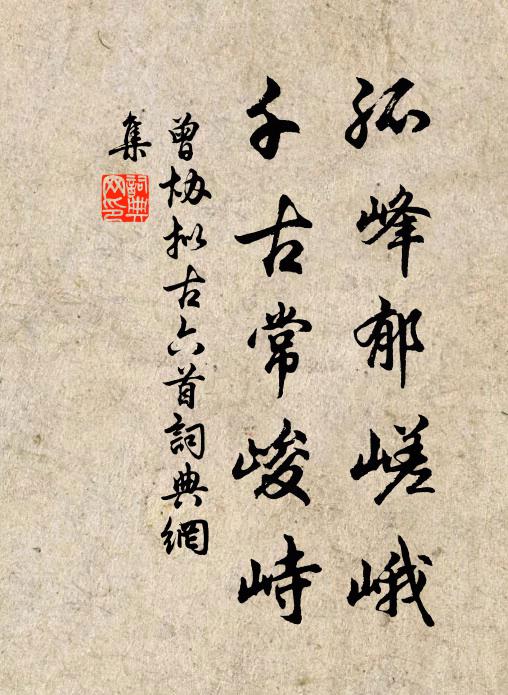 孤峰郁嵯峨
千古常峻峙
曾协拟古六首詞典網
集
詞典
网印